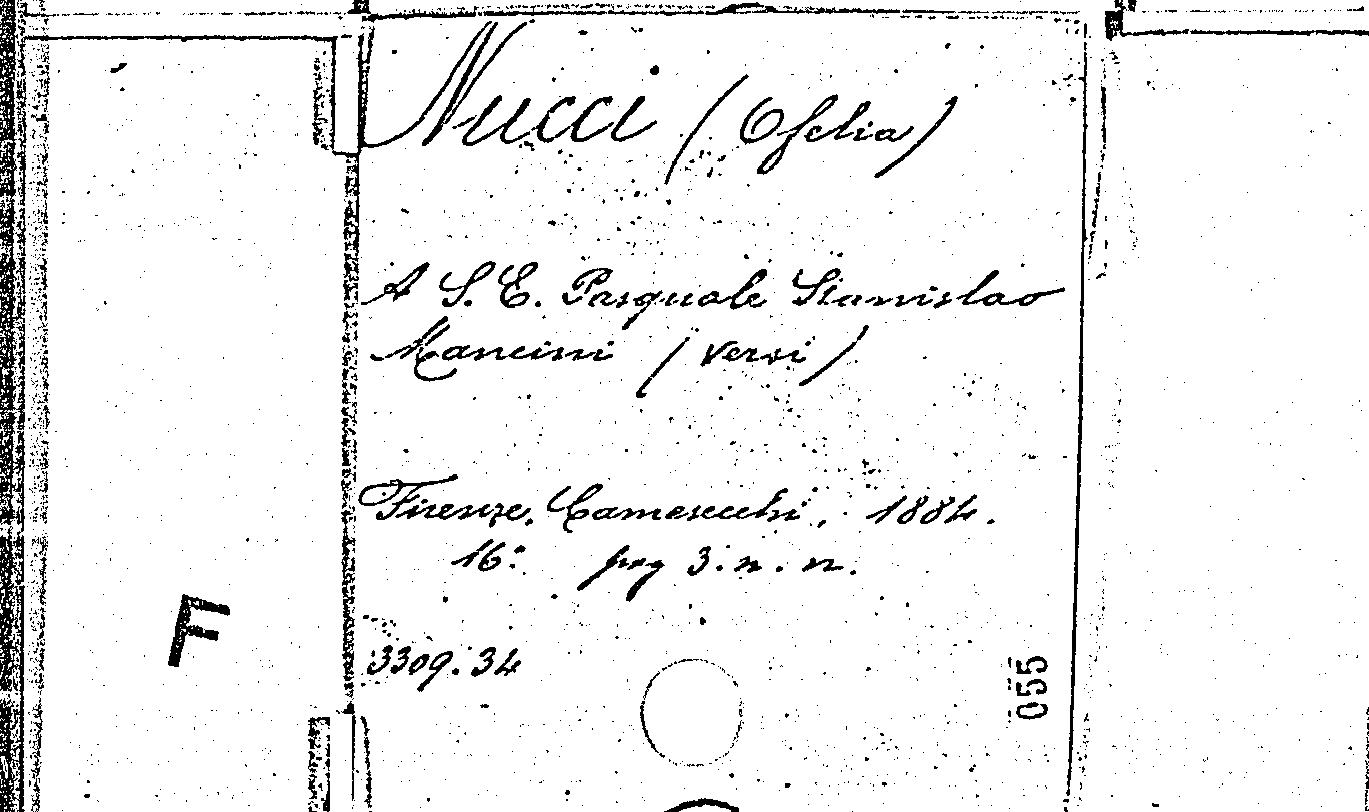 Nucci (Ofelia)
A S. E. Pasquale Stanislao
Mancini (versi)
Firenze, Camesecchi, 1884.
16.° pag 3. n. n.
3309.34
F
055